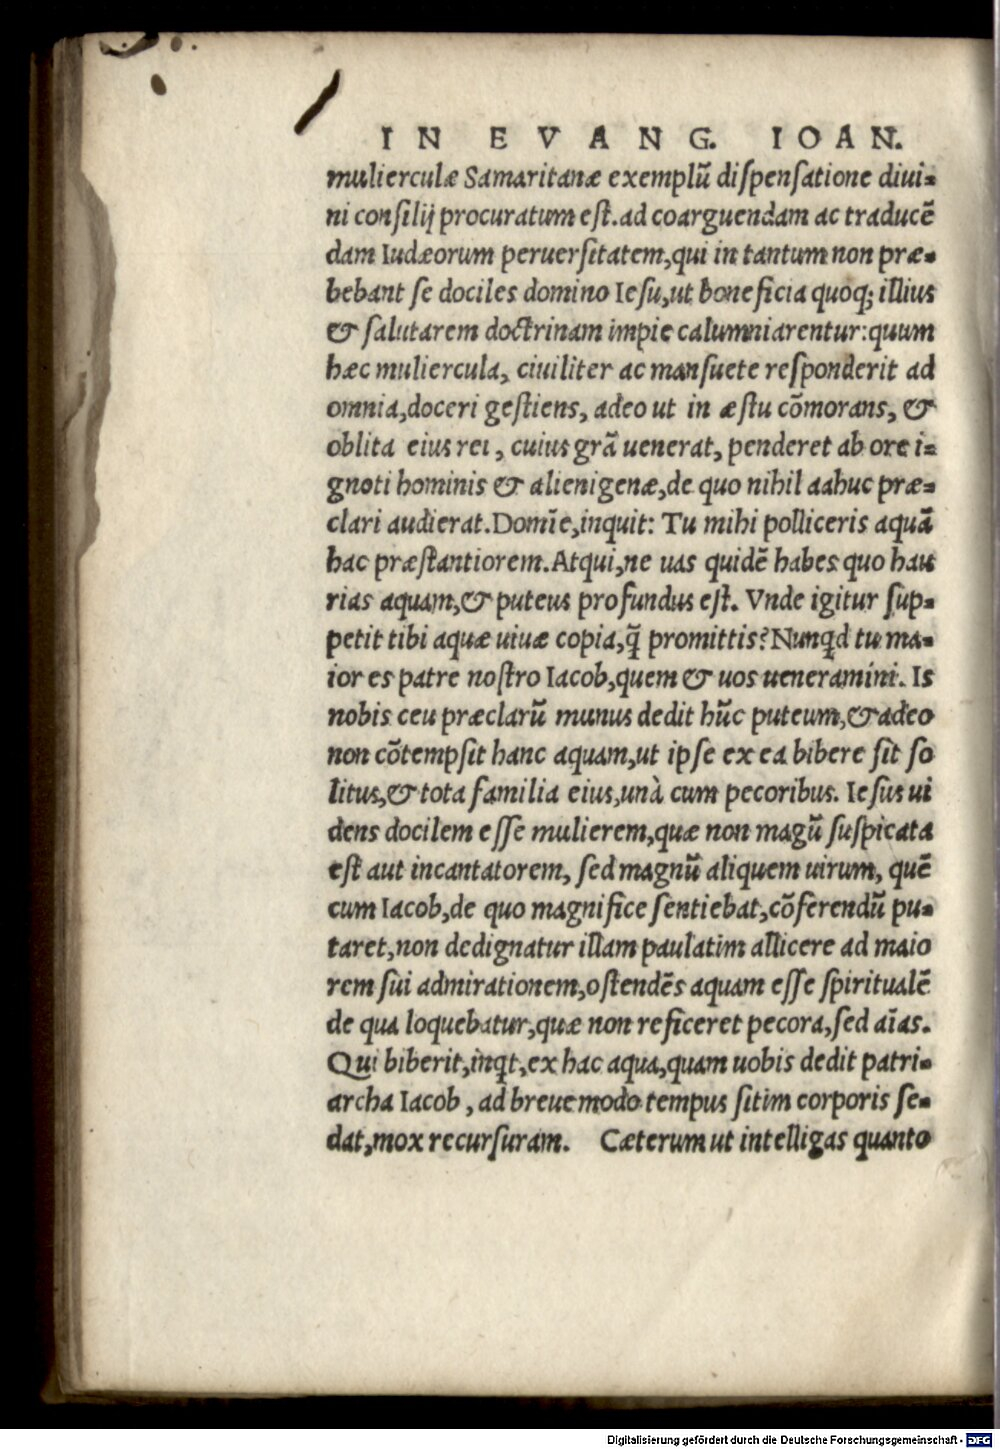 IN EVANG. IOAN.
mulierculæ Samaritanæ exemplũ dispensatione diui-
ni consilij procuratum est. ad coarguendam ac traducẽ
dam Iudæorum peruersitatem, qui in tantum non præ-
bebant se dociles domino Iesu, ut beneficia quoq; illius
& salutarem doctrinam impie calumniarentur: quum
hæc muliercula, ciuiliter ac mansuete responderit ad
omnia, doceri gestiens, adeo ut in æstu cõmorans, &
oblita eius rei, cuius grã uenerat, penderet ab ore i-
gnoti hominis & alienigenæ, de quo nihil adhuc præ-
clari audierat. Domĩe, inquit: Tu mihi polliceris aquã
hac præstantiorem. Atqui, ne uas quidẽ habes quo hau
rias aquam, & puteus profundus est. Vnde igitur sup-
petit tibi aquæ uiuæ copia, q̃ promittis? Nunqd tu ma-
ior es patre nostro Iacob, quem & uos ueneramini. Is
nobis ceu præclarũ munus dedit hũc puteum, & adeo
non cõtempsit hanc aquam, ut ipse ex ea bibere sit so
litus, & tota familia eius, unà cum pecoribus. Iesus ui
dens docilem esse mulierem, quæ non magũ suspicata
est aut incantatorem, sed magnũ aliquem uirum, quẽ
cum Iacob, de quo magnifice sentiebat, cõferendũ pu-
taret, non dedignatur illam paulatim allicere ad maio
rem sui admirationem, ostendẽs aquam esse spiritualẽ
de qua loquebatur, quæ non reficeret pecora, sed aĩas.
Qui biberit, inqt, ex hac aqua, quam uobis dedit patri-
archa Iacob, ad breue modo tempus sitim corporis se-
dat, mox recursuram. Cæterum ut intelligas quanto
Digitalisierung gefördert durch die Deutsche Forschungsgemeinschaft - DFG